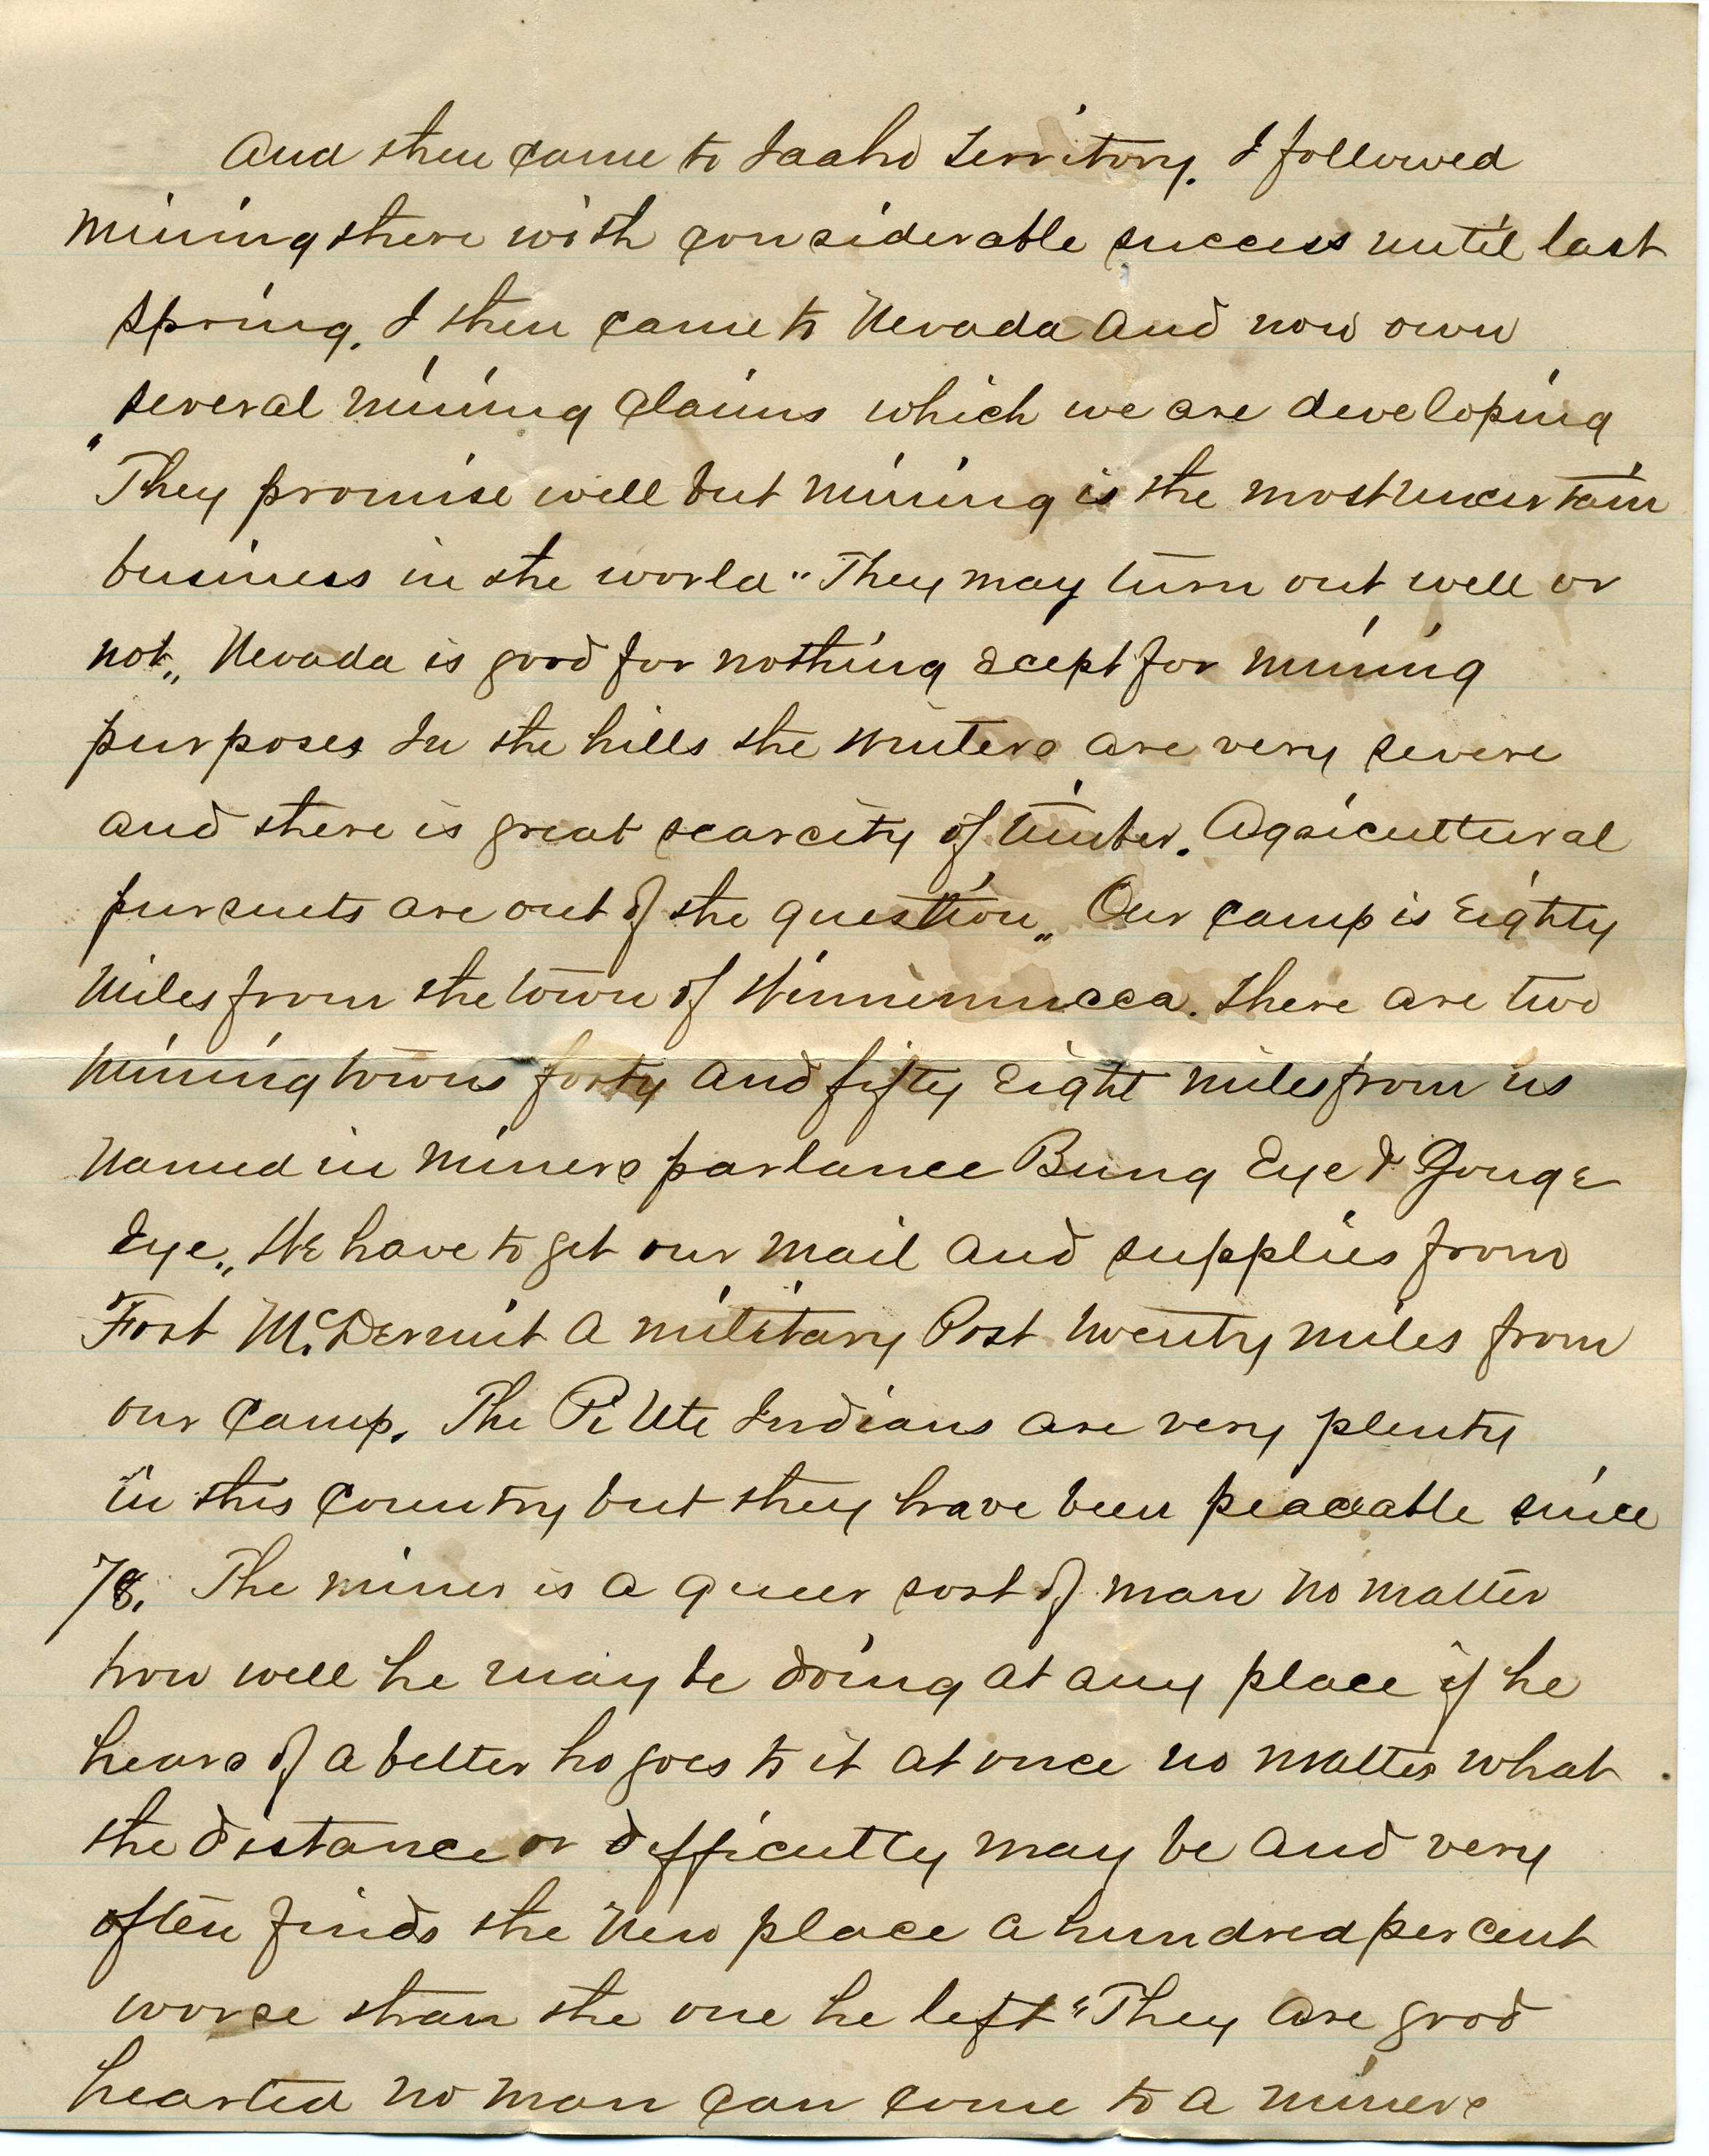 And then came to Idaho Territory. I followed
mining there with considerable success until last
spring. I then came to Nevada and now own
several mining claims which we are developing
"They promise well but mining is the most uncertain
business in the world" They may turn out well or
not„ Nevada is good for nothing ecept for mining
purposes In the hills the winters are very severe
and there is great scarcity of timber. Agricultural
pursuets are out of the question„ Our camp is Eighty
miles from the town of Winnemucca. There are two
mining towns forty and fifty Eight miles from us
Named in miners parlance Bung Eye & Gouge
Eye„ We have to get our mail and supplies from
Fort McDermit a military Post twenty miles from
our camp. The Pi Ute Indians are very plenty
in this country but they have been peaceable since
78. The miner is a queer sort of man no matter
how well he may be doing at any place if he
hears of a better he goes to it at once no matter what
the distance or difficulty may be and very
often finds the new place a hundred per cent
worse than the one he left "They are good
hearted no man can come to a miners